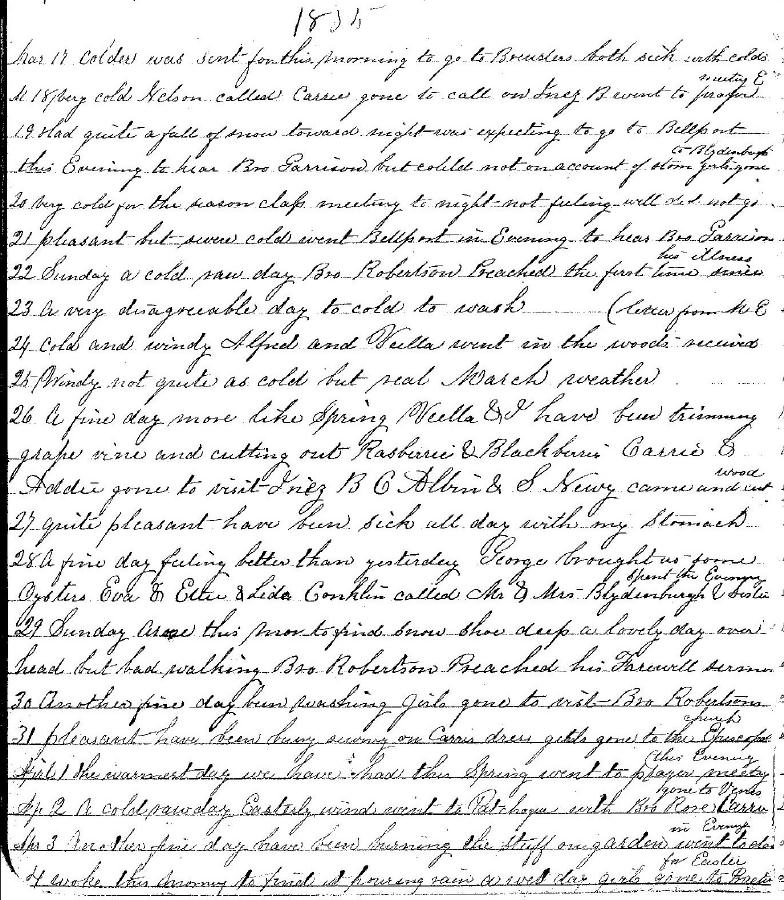 1885
Mar 17 Colder was sent for this morning to go to Brewsters both sick with colds
M 18 very cold Nelson called Carrie gone to call on Inez B went to prayer
meeting E
19 Had quite a fall of snow toward night was expecting to go to Bellport
this Evening to hear Bro Garrison but could not on account of storm girls gone
to Blydenburgh
20 very cold for the season class meeting to night not feeling well did not go
21 pleasant but severe cold went Bellport in Evening to hear Bro Garrison
22 Sunday a cold raw day Bro Robertson Preached the first time since
his illness
23 A very disagreeable day to cold to wash (letter from M E
24 Cold and windy Alfred and Veella went in the woods received
25 Windy not quite as cold but real March weather
26 A fine day more like Spring Veella & I have been trimming
grape vine and cutting out Rasberrie & Blackberrie Carrie &
Addie gone to visit Inez B C Albin & S Newy came and cut
wood
27 quite pleasant have been sick all day with my Stomach
28 A fine day feeling better than yesterday George brought us some
Oysters Eva & Ettie & Lida Conklin called Mr & Mrs Blydenburgh & Sister
spent the Evening
29 Sunday arose this mor to find snow shoe deep a lovely day over
head but bad walking Bro Robertson Preached his Farewell sermon
30 Another fine day been washing Girls gone to visit Bro Robertsons
31 pleasant have been busy sewing on Carries dress girls gone to the Episcopal
church
April 1 the warmest day we have had this Spring went to prayer meeting
(this Evening
Ap 2 A cold raw day Easterly wind went to Patchogue with Bro Rose Carrie
gone to
Apr 3 Another fine day have been burning the stuff on garden went to class
in Evening
4 woke this morning to find it pouring rain a wet day girls gone to
for Easter